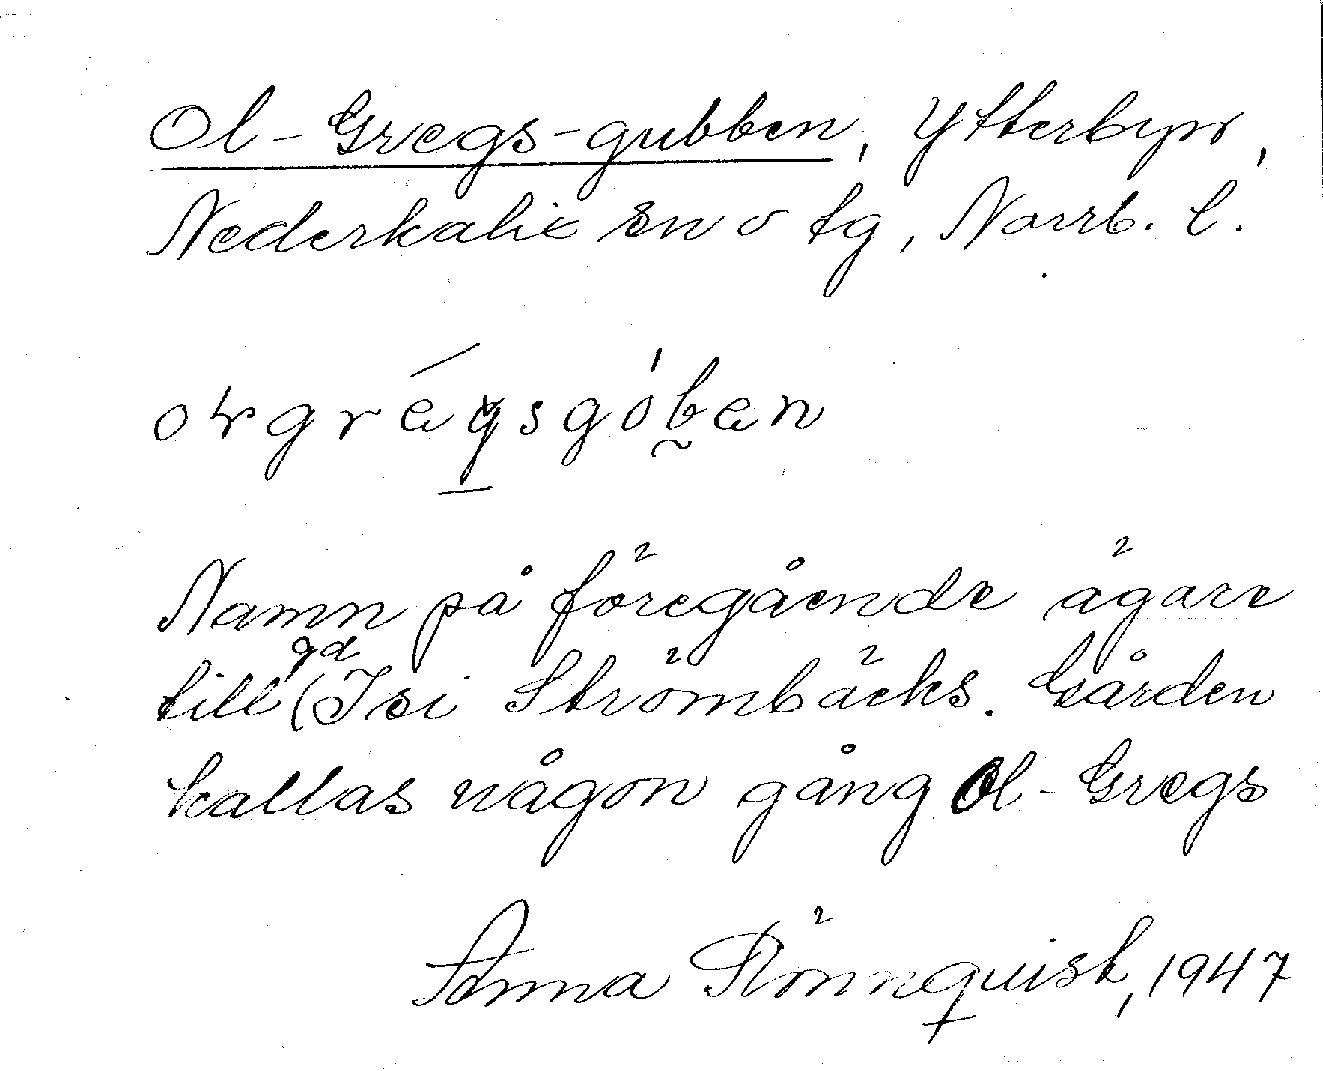 Ol-Gregs-gubben, Ytterbyn,
Nederkalix sn o tg, Norrb. l.
Namn på föregående ägare
till gd (Isi Strömbäcks. Gården
kallas någon gång Ol-Gregs
Anna Rönnquist, 1947